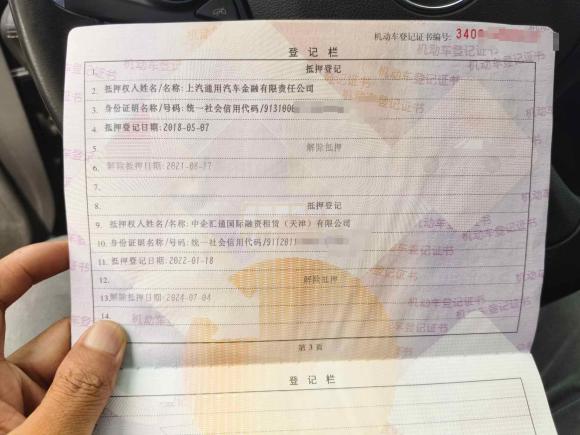 机动车登记证书编号: 340
登记栏
1. 抵押登记
2. 抵押权人姓名/名称: 上汽通用汽车金融有限责任公司
3. 身份证明名称/号码: 统一社会信用代码/9131000
4. 抵押登记日期:2018-05-07
5. 解除抵押
6. 解除抵押日期:2021-08-17
7.
8. 抵押登记
9. 抵押权人姓名/名称: 中企汇通国际融资租赁(天津)有限公司
10. 身份证明名称/号码: 统一社会信用代码/9112011
11. 抵押登记日期:2022-01-18
12. 解除抵押
13. 解除抵押日期:2024-07-04
14.
第3页
登记栏